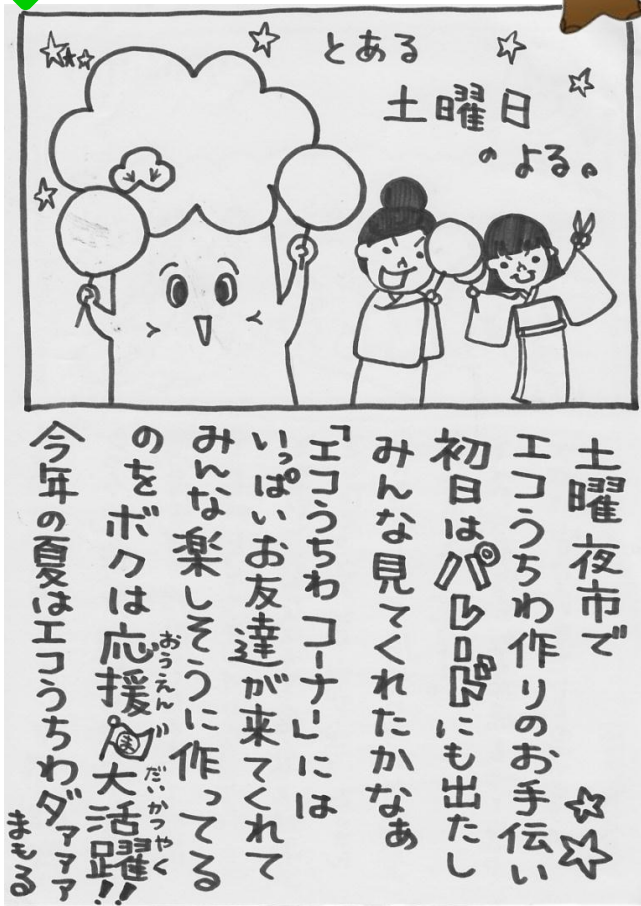 とある
土曜日
のよる。
土曜夜市で
エコうちわ作りのお手伝い
初日はパレードにも出たし
みんな見てくれたかなぁ
「エコうちわコーナー」には
いっぱいお友達が来てくれて
みんな楽しそうに作ってる
のをボクは応援で大活躍!!
おうえん
だいかつやく
今年の夏はエコうちわダァァァ
まもる